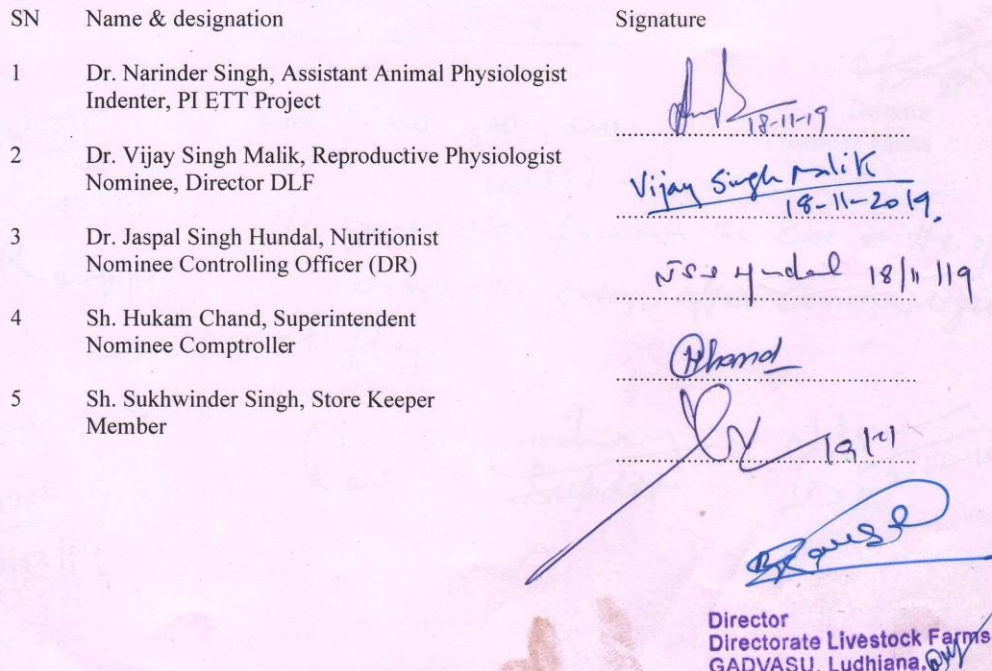 SN Name & designation Signature
1 Dr. Narinder Singh, Assistant Animal Physiologist
Indenter, PI ETT Project
18-11-19
2 Dr. Vijay Singh Malik, Reproductive Physiologist
Nominee, Director DLF
Vijay Singh Malik
18-11-2019.
3 Dr. Jaspal Singh Hundal, Nutritionist
Nominee Controlling Officer (DR)
Hundal 18/11/19
4 Sh. Hukam Chand, Superintendent
Nominee Comptroller
HChand
5 Sh. Sukhwinder Singh, Store Keeper
Member
Director
Directorate Livestock Farms
GADVASU, Ludhiana,